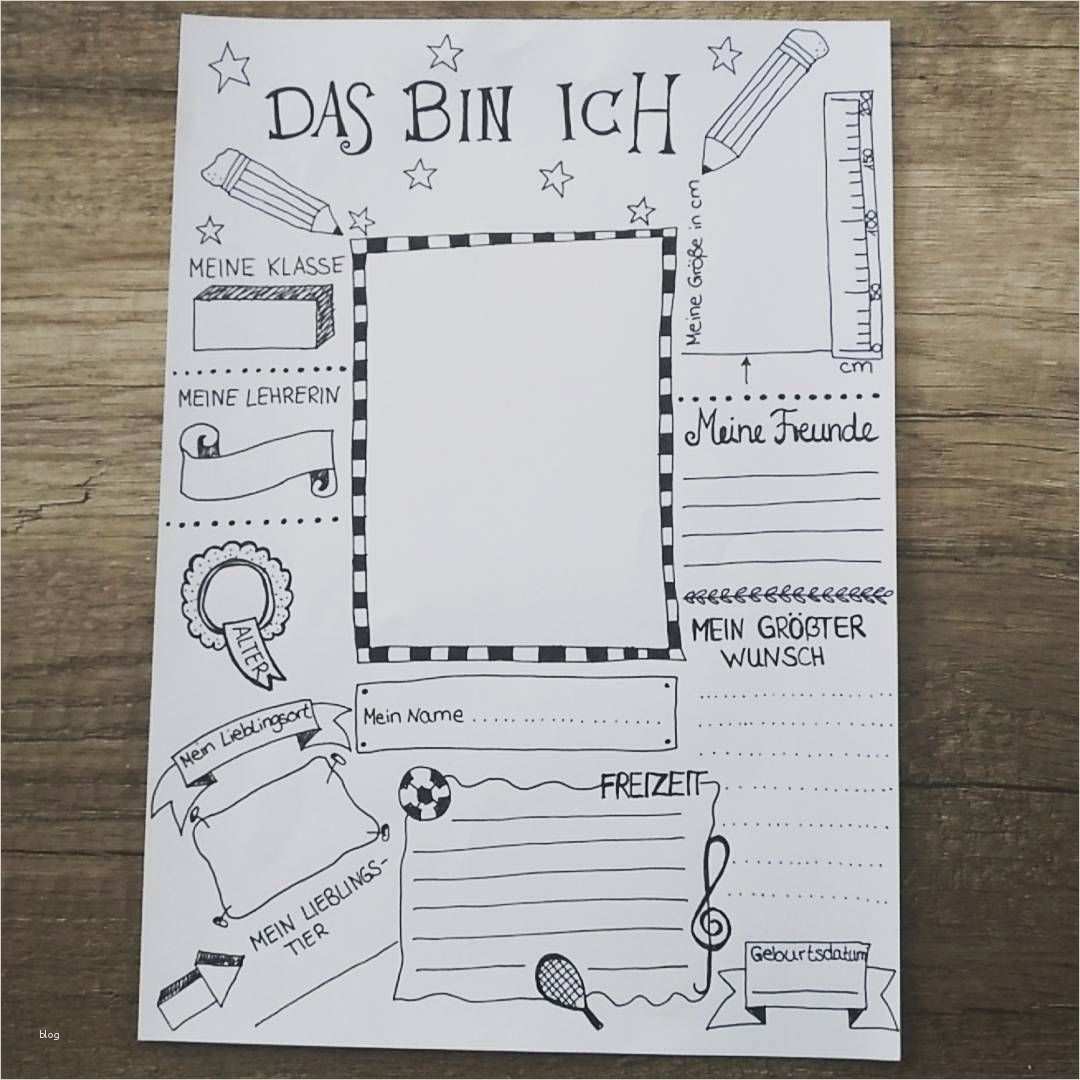 DAS BIN ICH
MEINE KLASSE
MEINE LEHRERIN
ALTER
Mein Lieblingsort
MEIN LIEBLINGS-
TIER
Mein Name ....................
FREIZEIT
Meine Größe in cm
200
150
100
50
0
cm
Meine Freunde
MEIN GRÖßTER
WUNSCH
Geburtsdatum
blog